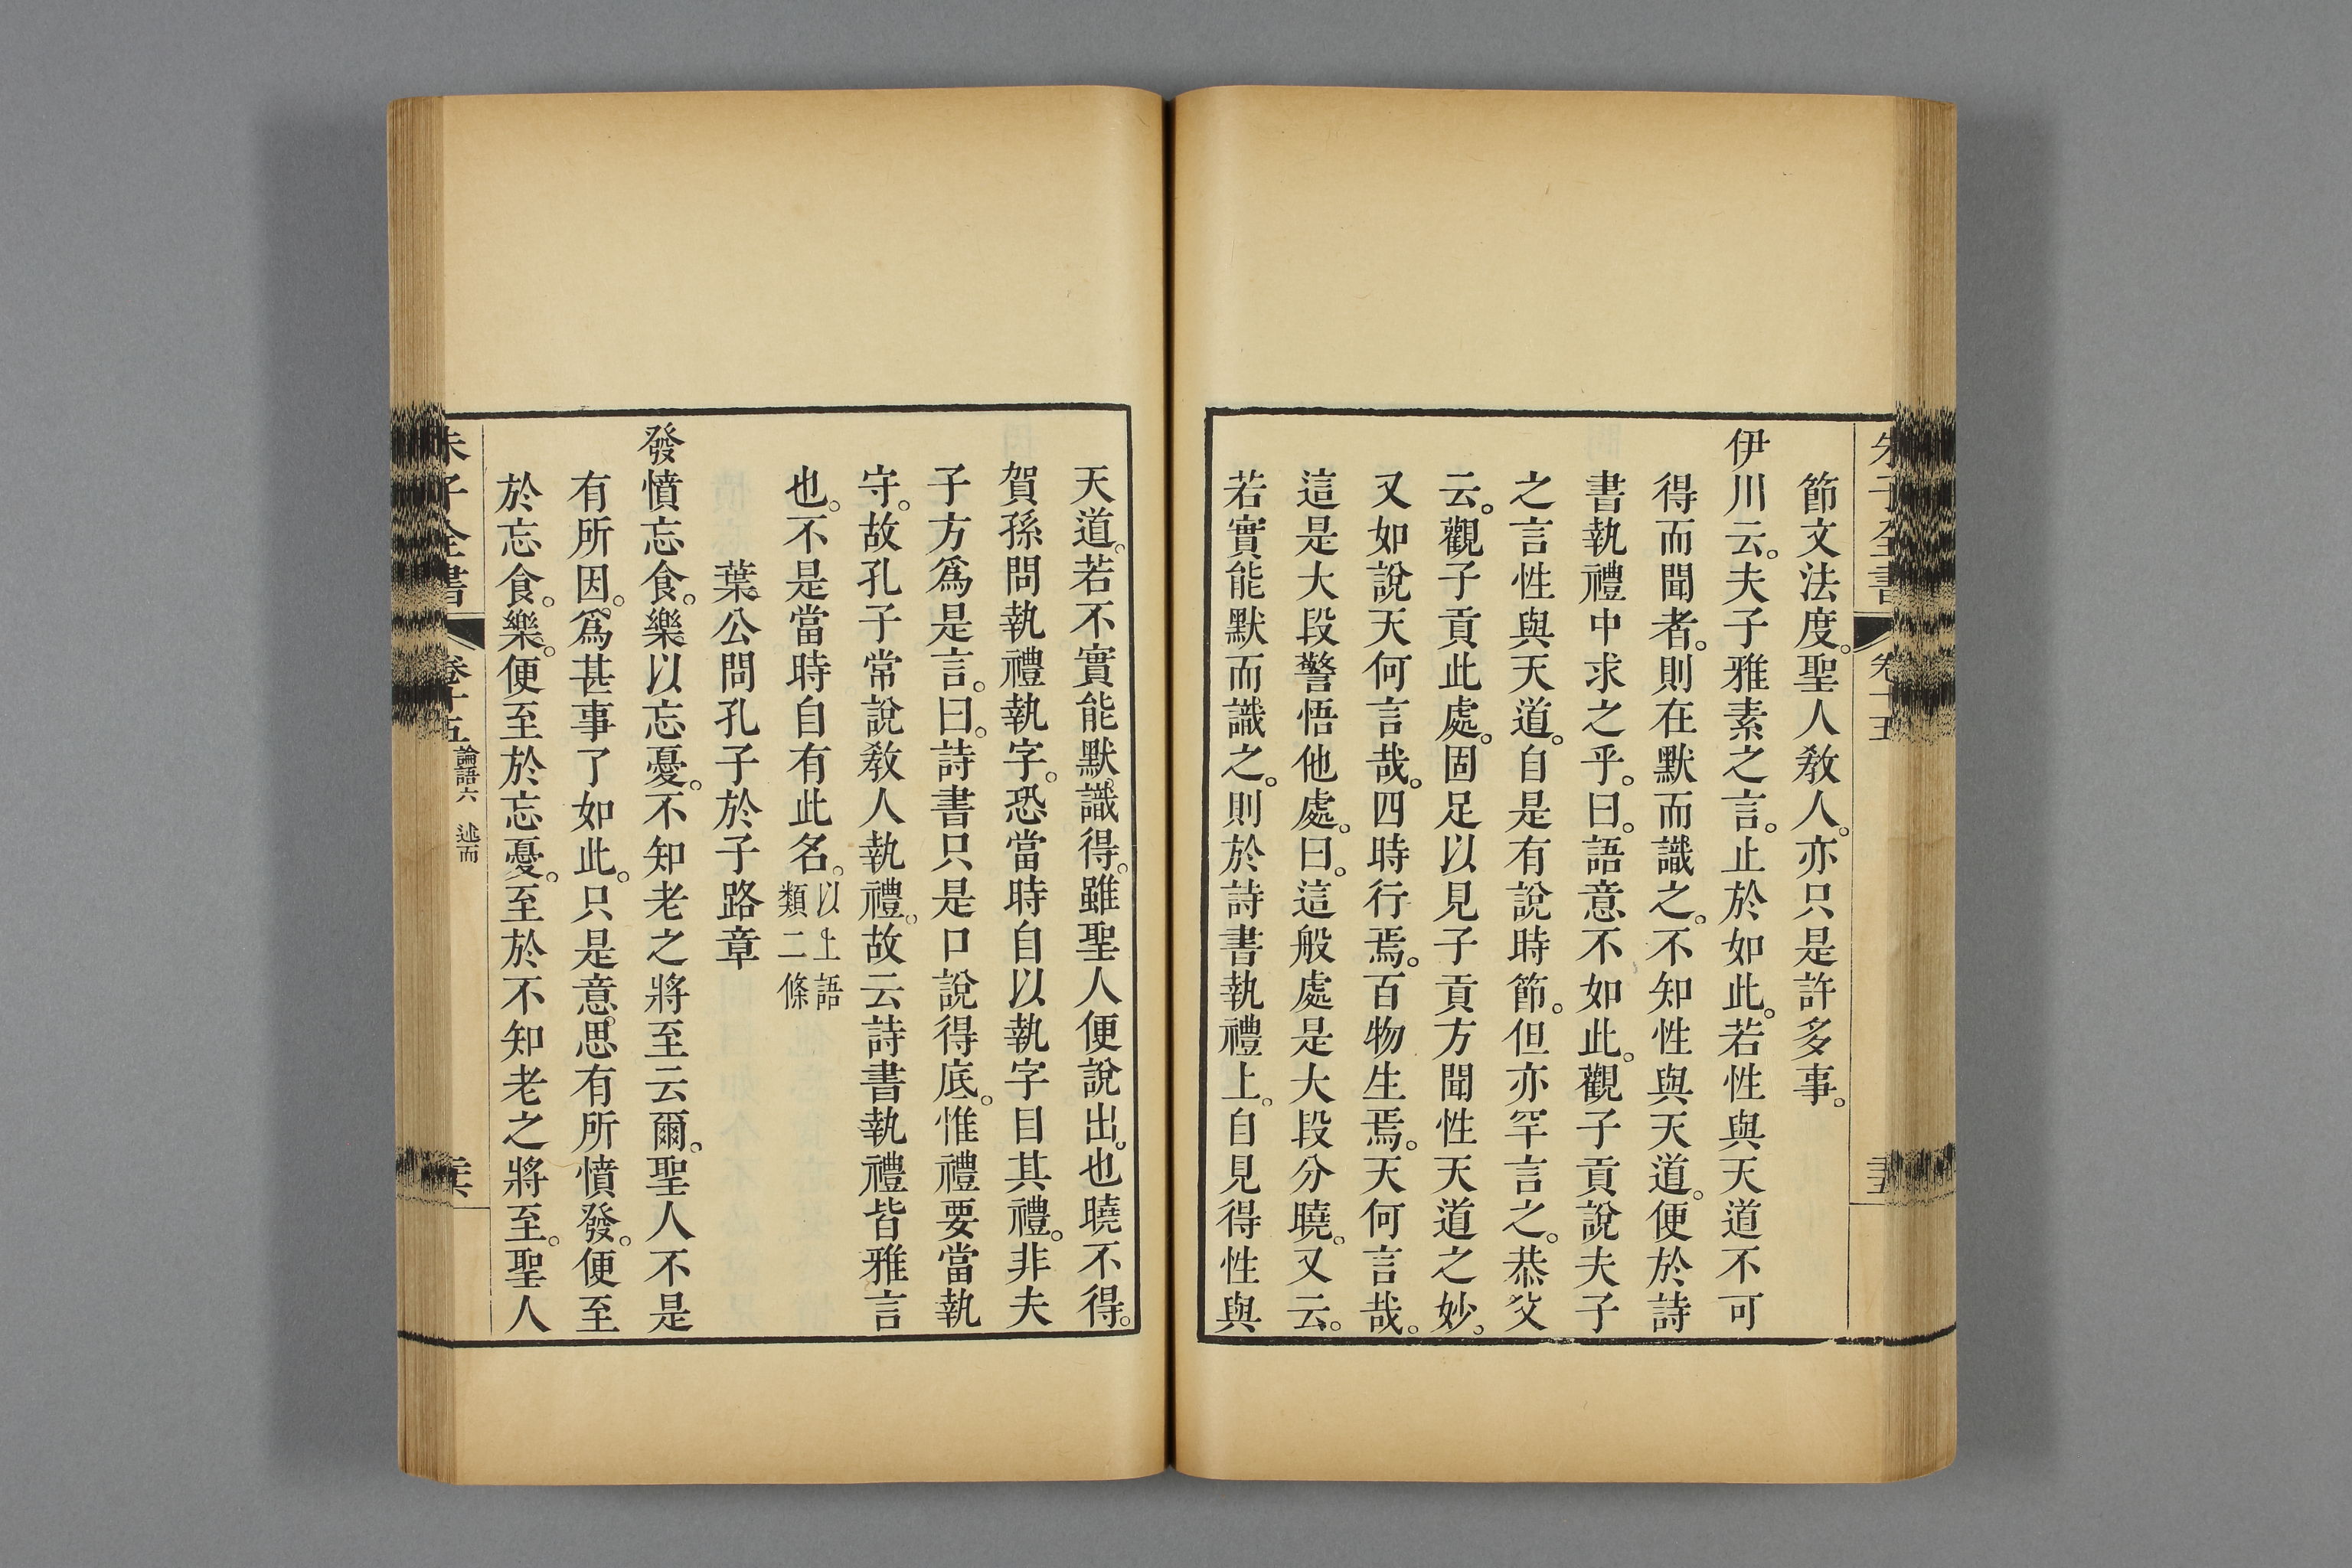 朱子全書 卷十五
節文法度。聖人教人。亦只是許多事。
伊川云。夫子雅素之言。止於如此。若性與天道不可
得而聞者。則在默而識之。不知性與天道。便於詩
書執禮中求之乎。曰。語意不如此。觀子貢說夫子
之言性與天道。自是有說時節。但亦罕言之。恭父
云。觀子貢此處。固足以見子貢方聞性天道之妙。
又如說天何言哉。四時行焉。百物生焉。天何言哉。
這是大段警悟他處。曰。這般處是大段分曉。又云。
若實能默而識之。則於詩書執禮上。自見得性與
天道。若不實能默識得。雖聖人便說出。也曉不得。
賀孫問執禮執字。恐當時自以執字目其禮。非夫
子方爲是言。曰。詩書只是口說得底。惟禮要當執
守。故孔子常說教人執禮。故云詩書執禮皆雅言
也。不是當時自有此名。以上語類二條
葉公問孔子於子路章
發憤忘食。樂以忘憂。不知老之將至云爾。聖人不是
有所因。爲甚事了如此。只是意思有所憤發。便至
於忘食。樂。便至於忘憂。至於不知老之將至。聖人
朱子全書 卷十五 論語六 述而